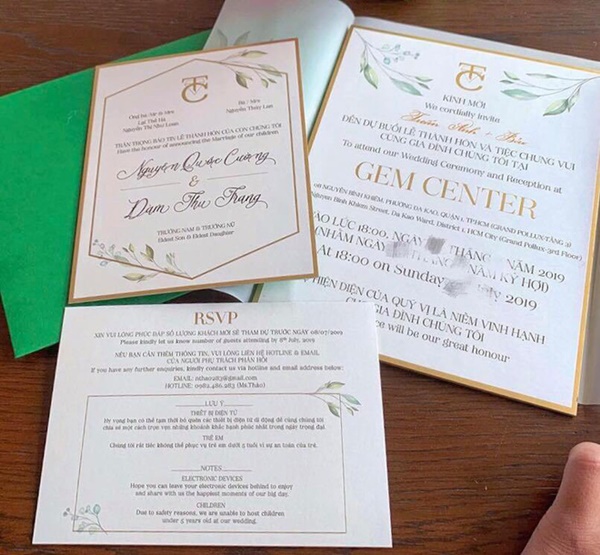 TC
Ông bà/Mr & Mrs
Lại Thế Hà
Nguyễn Thị Như Loan
Bà / Mrs
Nguyễn Thúy Lan
TRÂN TRỌNG BÁO TIN LỄ THÀNH HÔN CỦA CON CHÚNG TÔI
Have the honour of announcing the Marriage of our children
Nguyễn Quốc Cường
&
Đàm Thu Trang
TRƯỞNG NAM & TRƯỞNG NỮ
Eldest Son & Eldest Daughter
TC
KÍNH MỜI
We cordially invite
ĐẾN DỰ BUỔI LỄ THÀNH HÔN VÀ TIỆC CHUNG VUI
CÙNG GIA ĐÌNH CHÚNG TÔI TẠI
To attend our Wedding Ceremony and Reception at
GEM CENTER
NGUYỄN BỈNH KHIÊM, PHƯỜNG ĐA KAO, QUẬN 1, TP.HCM (GRAND POLLUX-TẦNG 3)
Nguyen Binh Khiem Street, Da Kao Ward, District 1, HCM City (Grand Pollux-3rd Floor)
VÀO LÚC 18:00, NGÀY THÁNG NĂM 2019
(NHẰM NGÀY THÁNG NĂM KỶ HỢI)
At 18:00 on Sunday July 2019
HIỆN DIỆN CỦA QUÝ VỊ LÀ NIỀM VINH HẠNH
CHO GIA ĐÌNH CHÚNG TÔI
will be our great honour
RSVP
XIN VUI LÒNG PHÚC ĐÁP SỐ LƯỢNG KHÁCH MỜI SẼ THAM DỰ TRƯỚC NGÀY 08/07/2019
Please kindly let us know number of guests attending by 8th July, 2019
NẾU BẠN CẦN THÊM THÔNG TIN, VUI LÒNG LIÊN HỆ HOTLINE & EMAIL
CỦA NGƯỜI PHỤ TRÁCH PHẢN HỒI
If you have any further enquiries, kindly contact us via hotline and email address below:
EMAIL: nthao2113@gmail.com
HOTLINE: 0982.480.283 (Ms.Thảo)
LƯU Ý
THIẾT BỊ ĐIỆN TỬ
Hy vọng bạn có thể tạm thời bỏ quên các thiết bị điện tử di động để cùng chúng tôi
chia sẻ một cách trọn vẹn những khoảnh khắc hạnh phúc nhất trong ngày trọng đại.
TRẺ EM
Chúng tôi rất tiếc không thể phục vụ trẻ em dưới 5 tuổi vì sự an toàn của trẻ.
NOTES
ELECTRONIC DEVICES
Hope you can leave your electronic devices behind to enjoy
and share with us the happiest moments of our big day.
CHILDREN
Due to safety reasons, we are unable to host children
under 5 years old at our wedding.